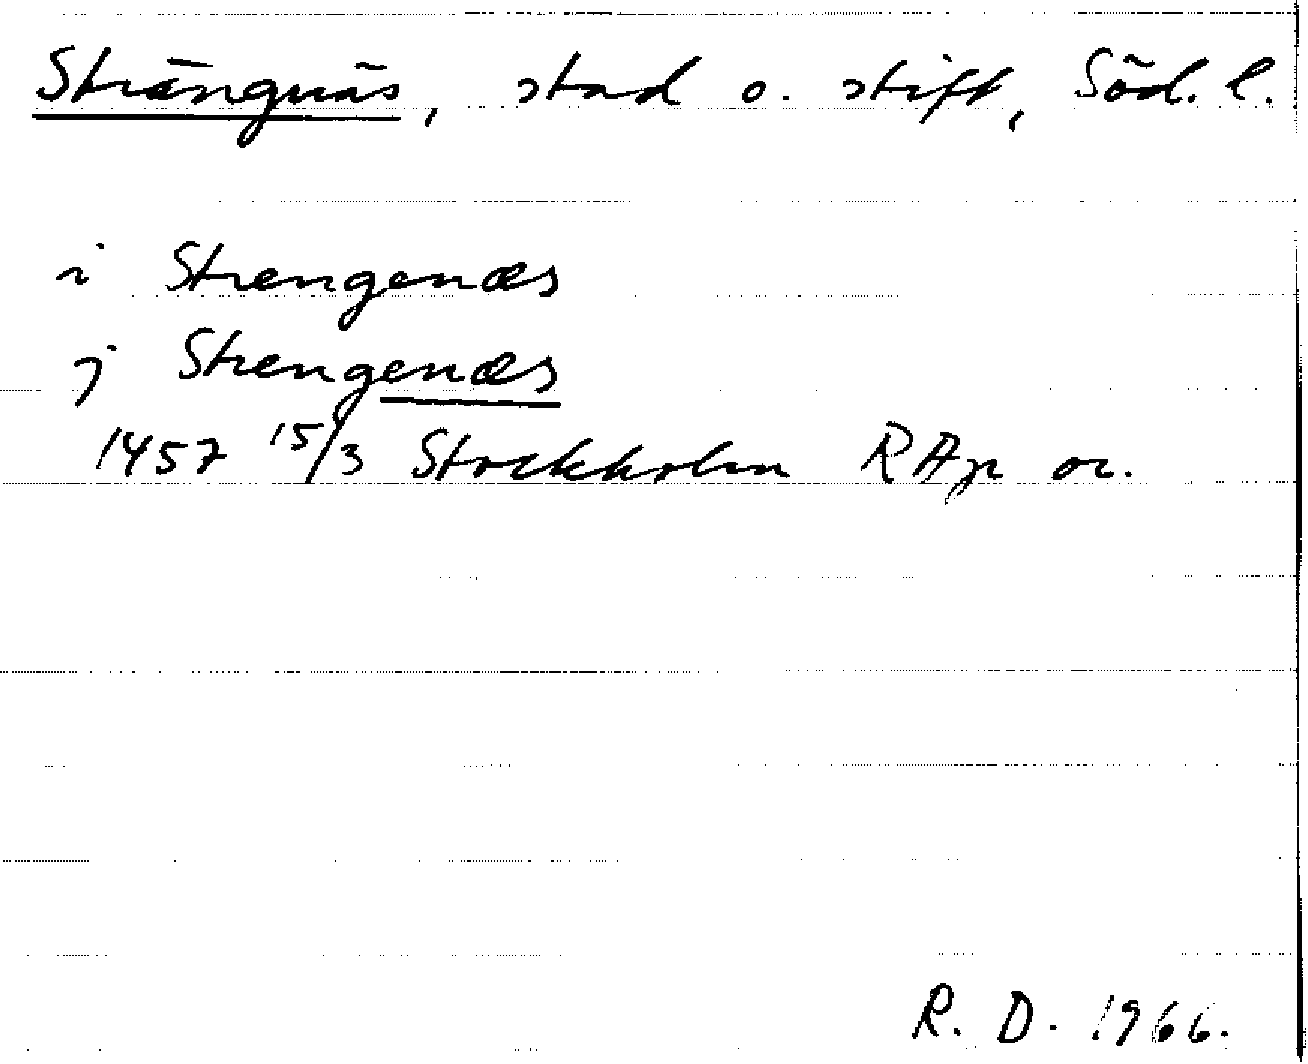 Strängnäs, stad o. stift, Söd. l.
i Strengenæs
j Strengenæs
1457 15/3 Stockholm RAp or.
R. D. 1966.